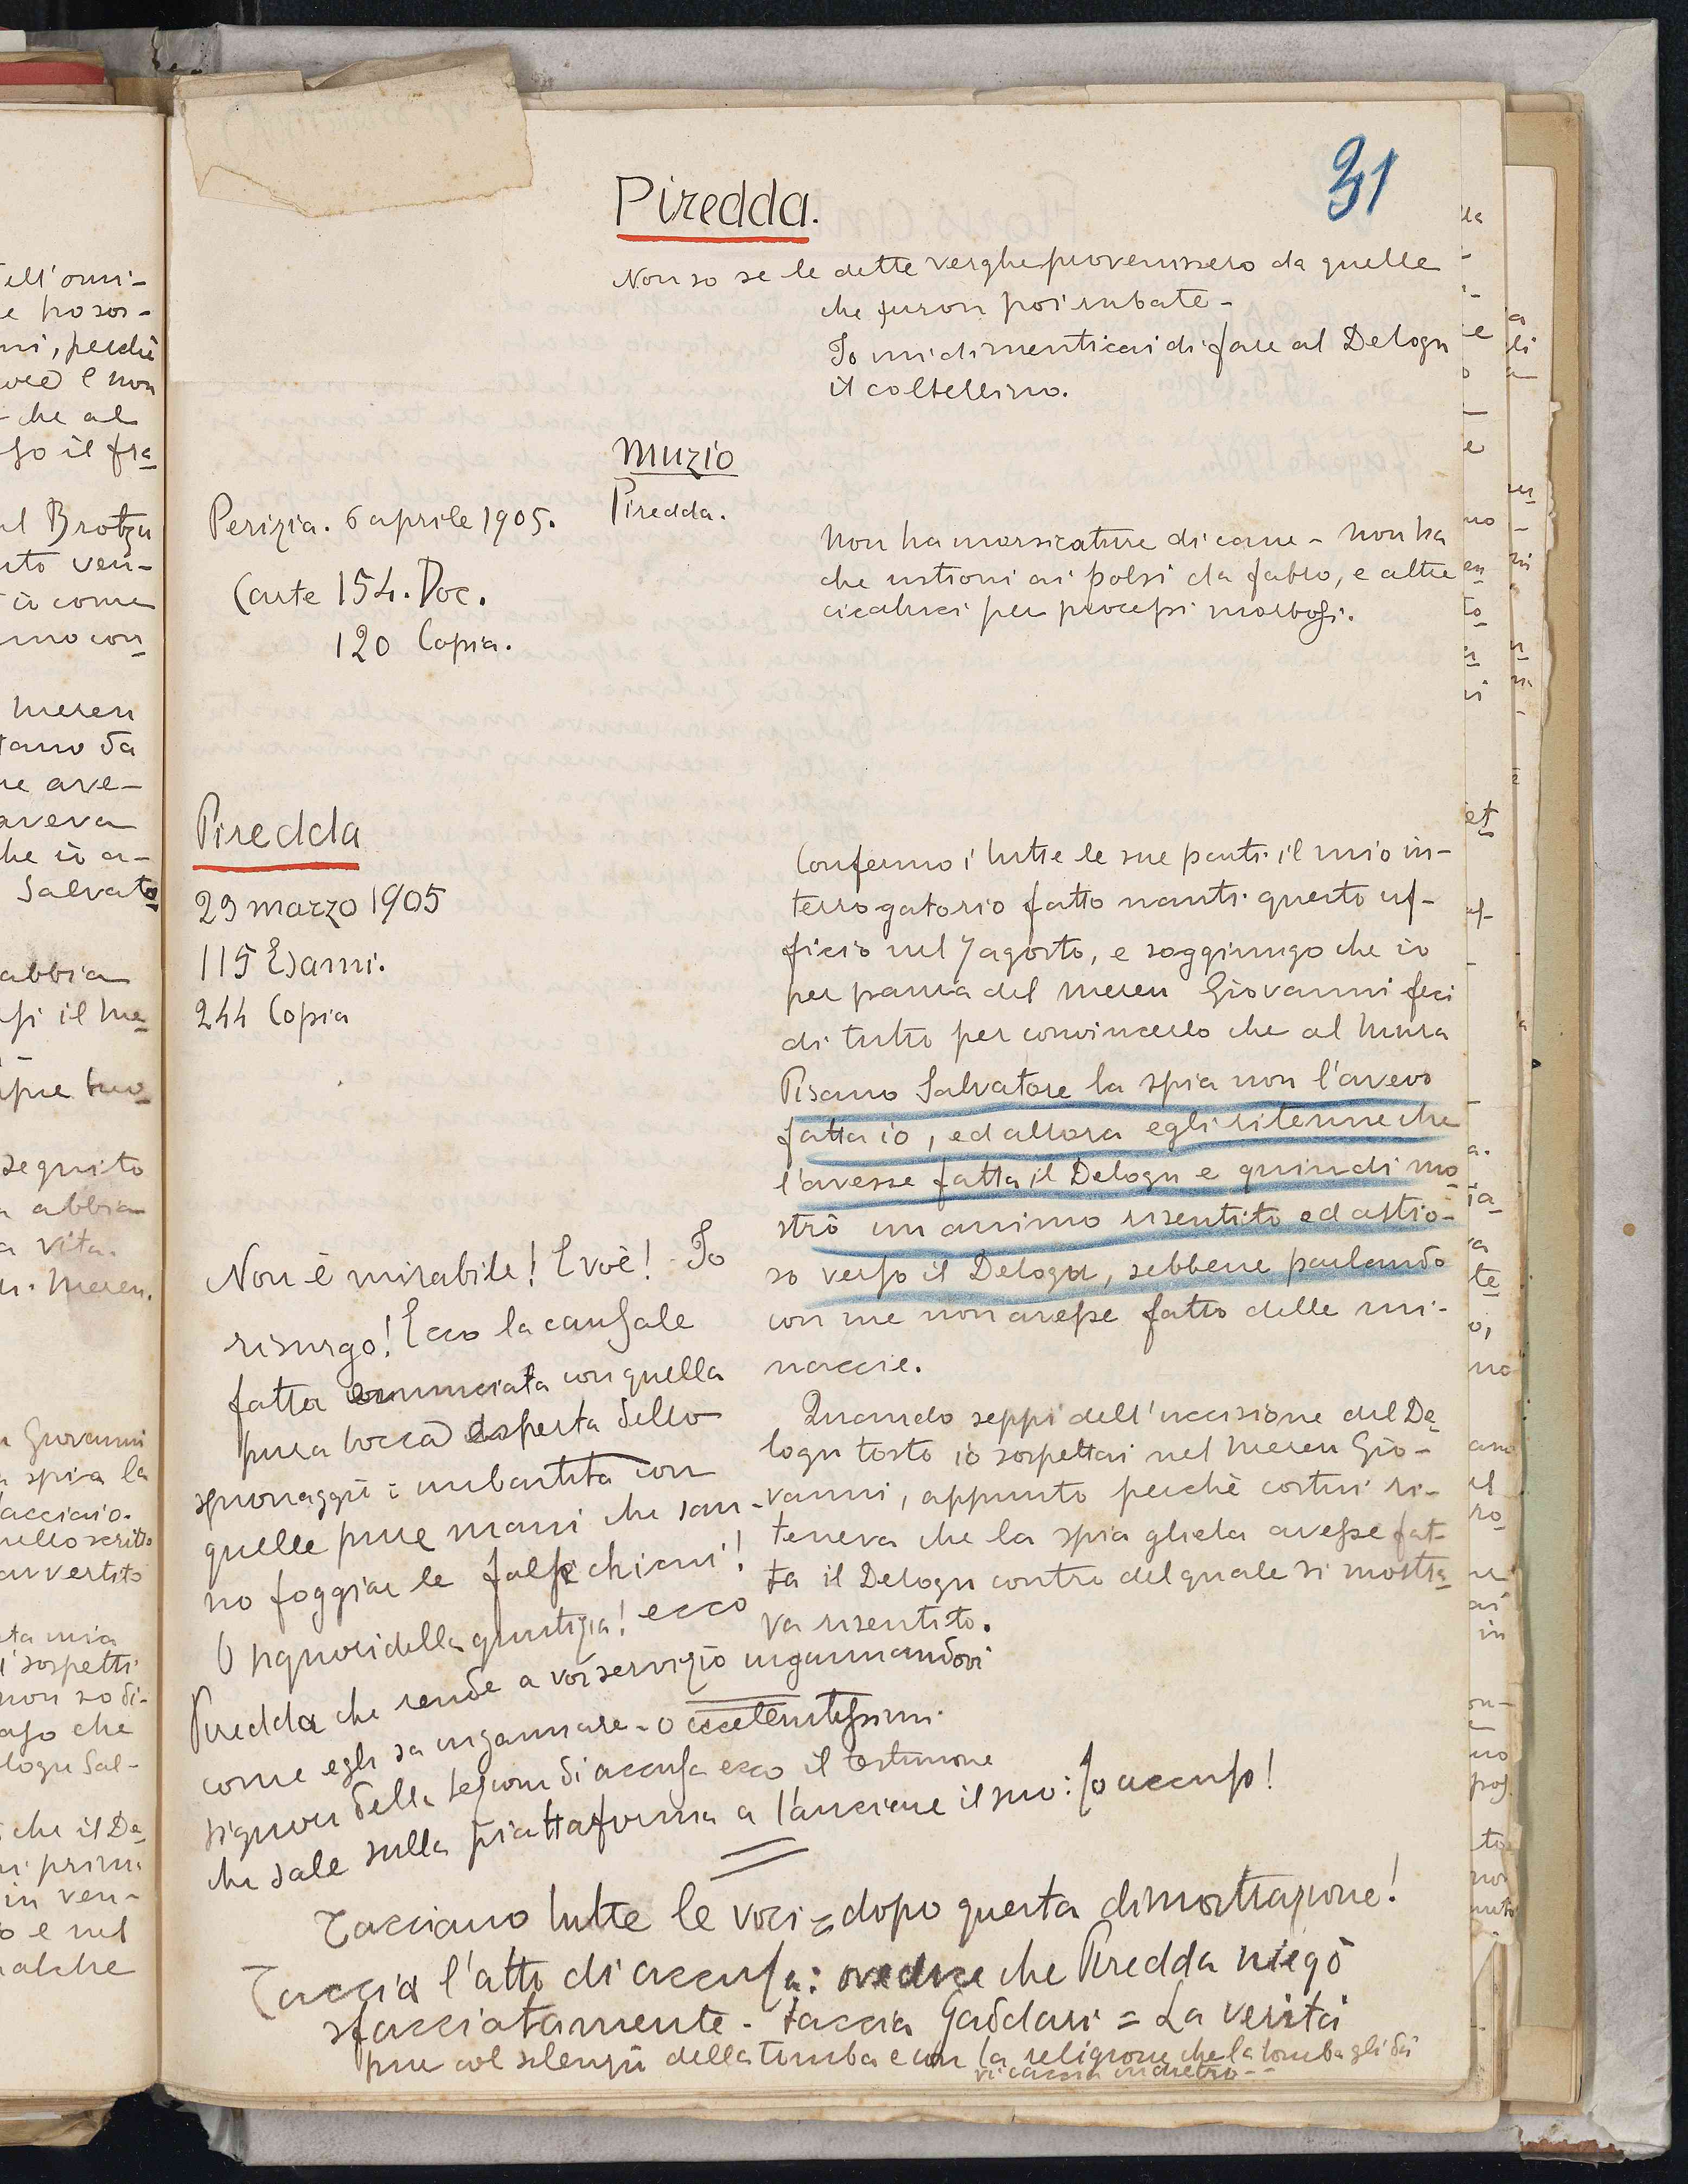 31
Piredda.
Non so se le dette verghe provenissero da quelle
che furon poi rubate -
Io mi dimenticai di fare al Delogu
il coltellino.
Muzio
Piredda.
Perizia. 6 aprile 1905.
Carte 154. Doc.
120 Copia.
Non ha morsicature di cane - non ha
che ustioni ai polsi da fabbro, e altre
cicatrici per processi morbosi.
Piredda
29 marzo 1905
115 Esami.
244 Copia
Confermo i tutte le sue parti il mio in-
terrogatorio fatto nanti questo uf-
ficio nel 7 agosto, e soggiungo che io
per paura del Mereu Giovanni feci
di tutto per convincerlo che al Mura
Pisano Salvatore la spia non l'avevo
fatta io, ed allora egli ritenne che
l'avesse fatta il Delogu e quindi mo-
strò un animo risentito ed astio-
so verso il Delogu, sebbene parlando
con me non avesse fatto delle mi-
naccie.
Quando seppi dell'uccisione del De-
logu tosto io sospettai nel Mereu Gio-
vanni, appunto perchè costui ri-
teneva che la spia gliela avesse fat-
ta il Delogu contro del quale si mostra-
va risentito.
Non è mirabile! Evoè! Io
risurgo! Ecco la causale
fatta enunciata con quella
pura bocca esperta dello
spionaggio: imbastita con
quelle pure mani che san-
no foggiar le false chiavi!
O signori della giustizia! ecco
Piredda che rende a voi servizio ingannandovi
come egli sa ingannare - o eccelentissimi
signori della sezione di accusa ecco il testimone
che sale sulla piattaforma a lanciare il suo: Io accuso!
Tacciano tutte le voci = dopo questa dimostrazione!
Taccia l'atto di accusa: ove dice che Piredda niegò
sfacciatamente - taccia Gaddari = La verità
pure col silenzio della tomba e con la religione che la tomba gli dà
vi caccia indietro -